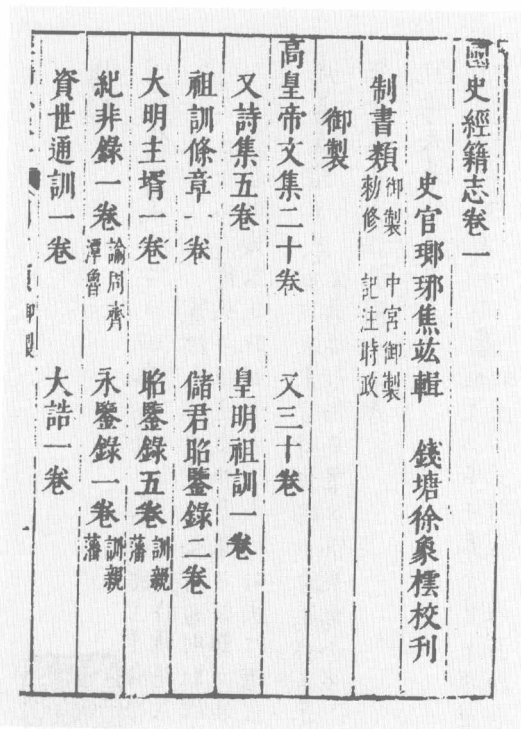 國史經籍志卷一
史官瑯琊焦竑輯　錢塘徐象橒校刊
制書類 御製　中宮御製 勑修　記注時政
御製
高皇帝文集二十卷　又三十卷
又詩集五卷　皇明祖訓一卷
祖訓條章一卷　儲君昭鑒錄二卷
大明主壻一卷　昭鑒錄五卷 訓親藩
紀非錄一卷 諭周齊潭魯　永鑒錄一卷 訓親藩
資世通訓一卷　大誥一卷
御製